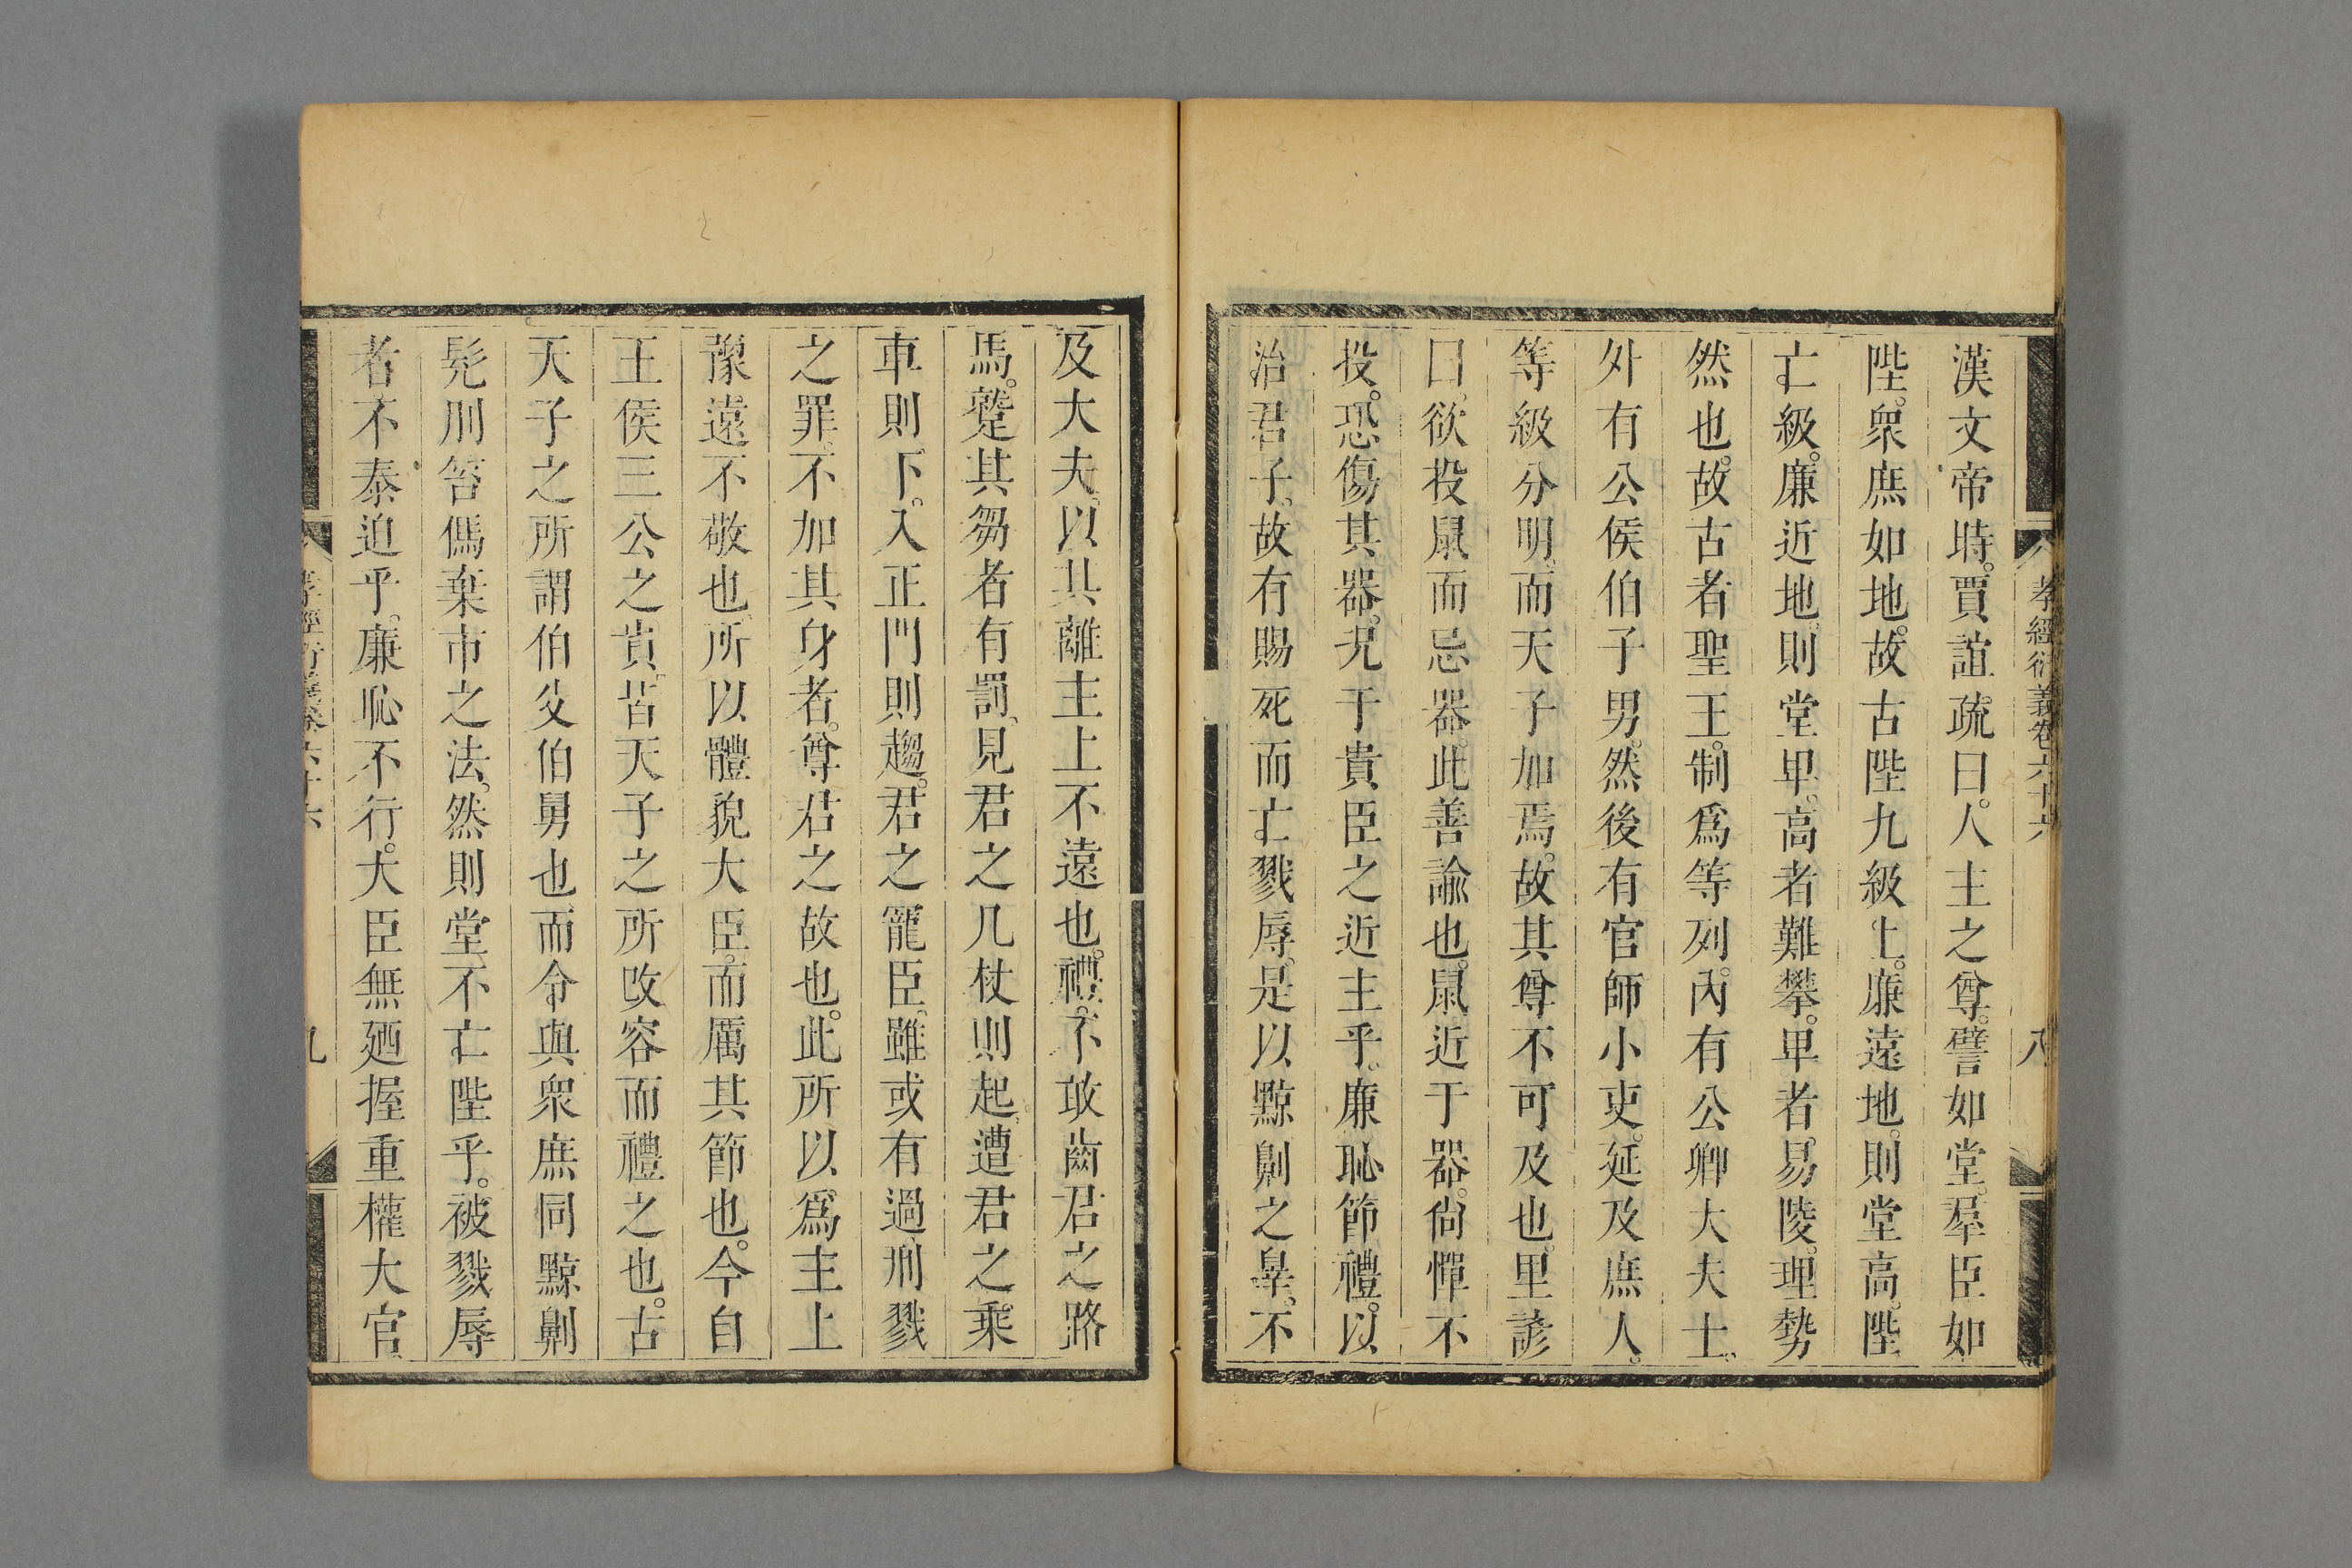 孝經衍義卷六十六
八
漢文帝時。賈誼疏曰。人主之尊。譬如堂。羣臣如
陛。衆庶如地。故古陛九級上。廉遠地。則堂高。陛
亡級。廉近地。則堂卑。高者難攀。卑者易陵。理勢
然也。故古者聖王。制爲等列。內有公卿大夫士。
外有公侯伯子男。然後有官師小吏。延及庶人。
等級分明。而天子加焉。故其尊不可及也。里諺
曰。欲投鼠而忌器。此善諭也。鼠近于器。尙憚不
投。恐傷其器。况于貴臣之近主乎。廉恥節禮。以
治君子。故有賜死而亡戮辱。是以黥劓之辠。不
及大夫。以其離主上不遠也。禮。不敢齒君之路
馬。蹵其芻者有罰。見君之几杖則起。遭君之乘
車則下。入正門則趨。君之寵臣。雖或有過。刑戮
之罪。不加其身者。尊君之故也。此所以爲主上
豫遠不敬也。所以體貌大臣。而厲其節也。今自
王侯三公之貴。皆天子之所改容而禮之也。古
天子之所謂伯父伯舅也。而令與衆庶同黥劓
髡刖笞傌棄市之法。然則堂不亡陛乎。被戮辱
者不泰迫乎。廉恥不行。大臣無廼握重權大官
孝經衍義卷六十六
九